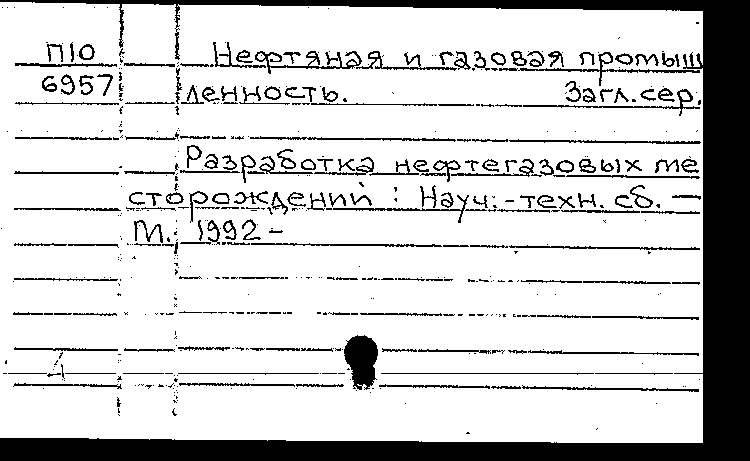 П10 Нефтяная и газовая промыш
6957 ленность. Загл.сер.
Разработка нефтегазовых ме
сторождений : Науч.-техн. сб. —
М., 1992 -